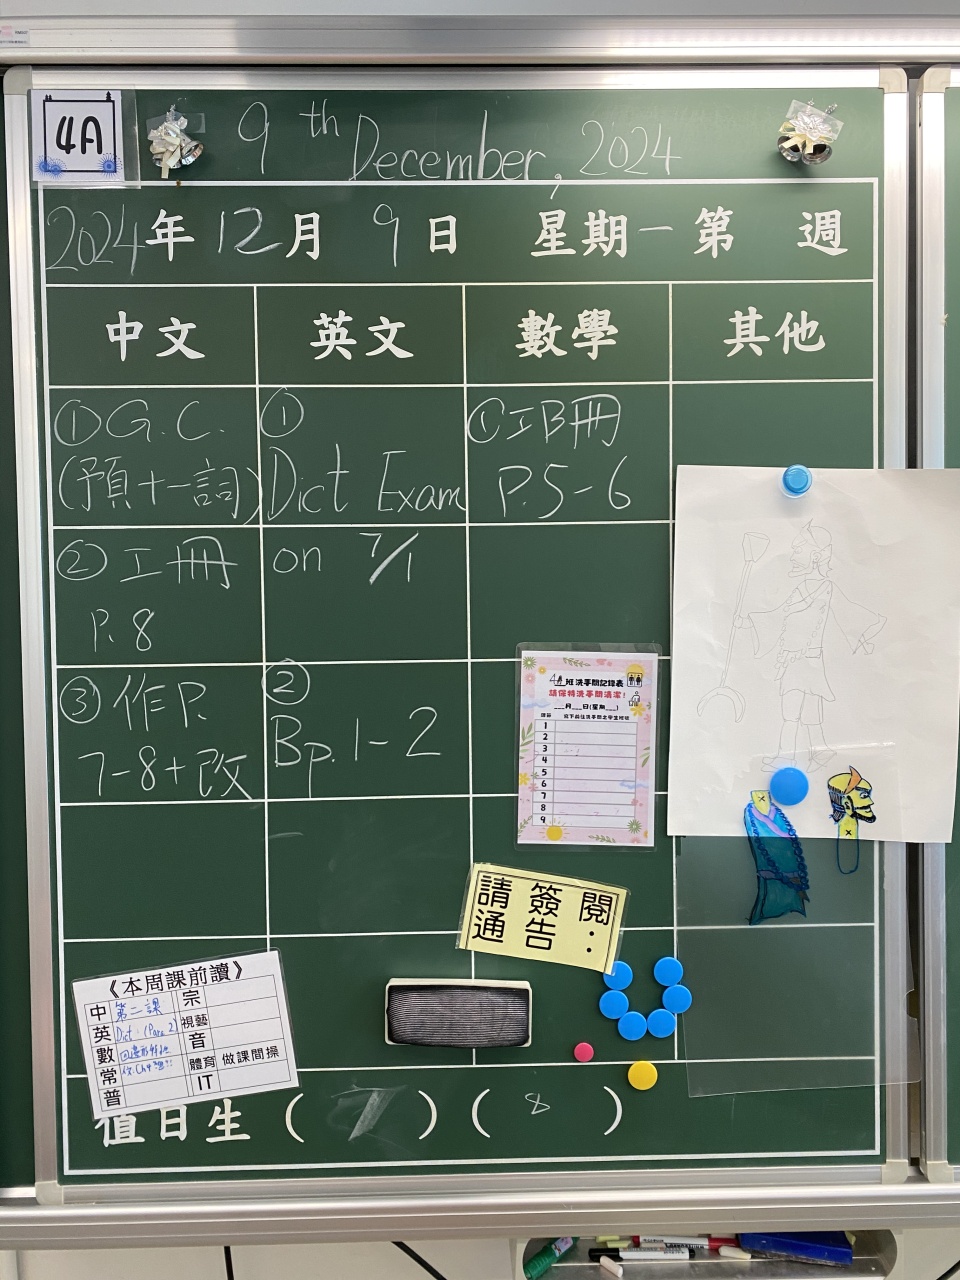 4A
9th December, 2024
2024年12月9日 星期一第 週
中文 英文 數學 其他
①G.C.
(預+一詞)
②工冊
P.8
③作P.
7-8+改
①
Dict Exam
on 7/1
②
Bp.1-2
①工B冊
P.5-6
4A班洗手間記錄表
請保持洗手間清潔!
___月___日(星期___)
1
2
3
4
5
6
7
8
9
請簽閱
通告:
《本周課前讀》
中 第二課 宗
英 Dict: (Para 2) 視藝
數 音
常 體育 做課間操
普 IT
值日生 (7) (8)